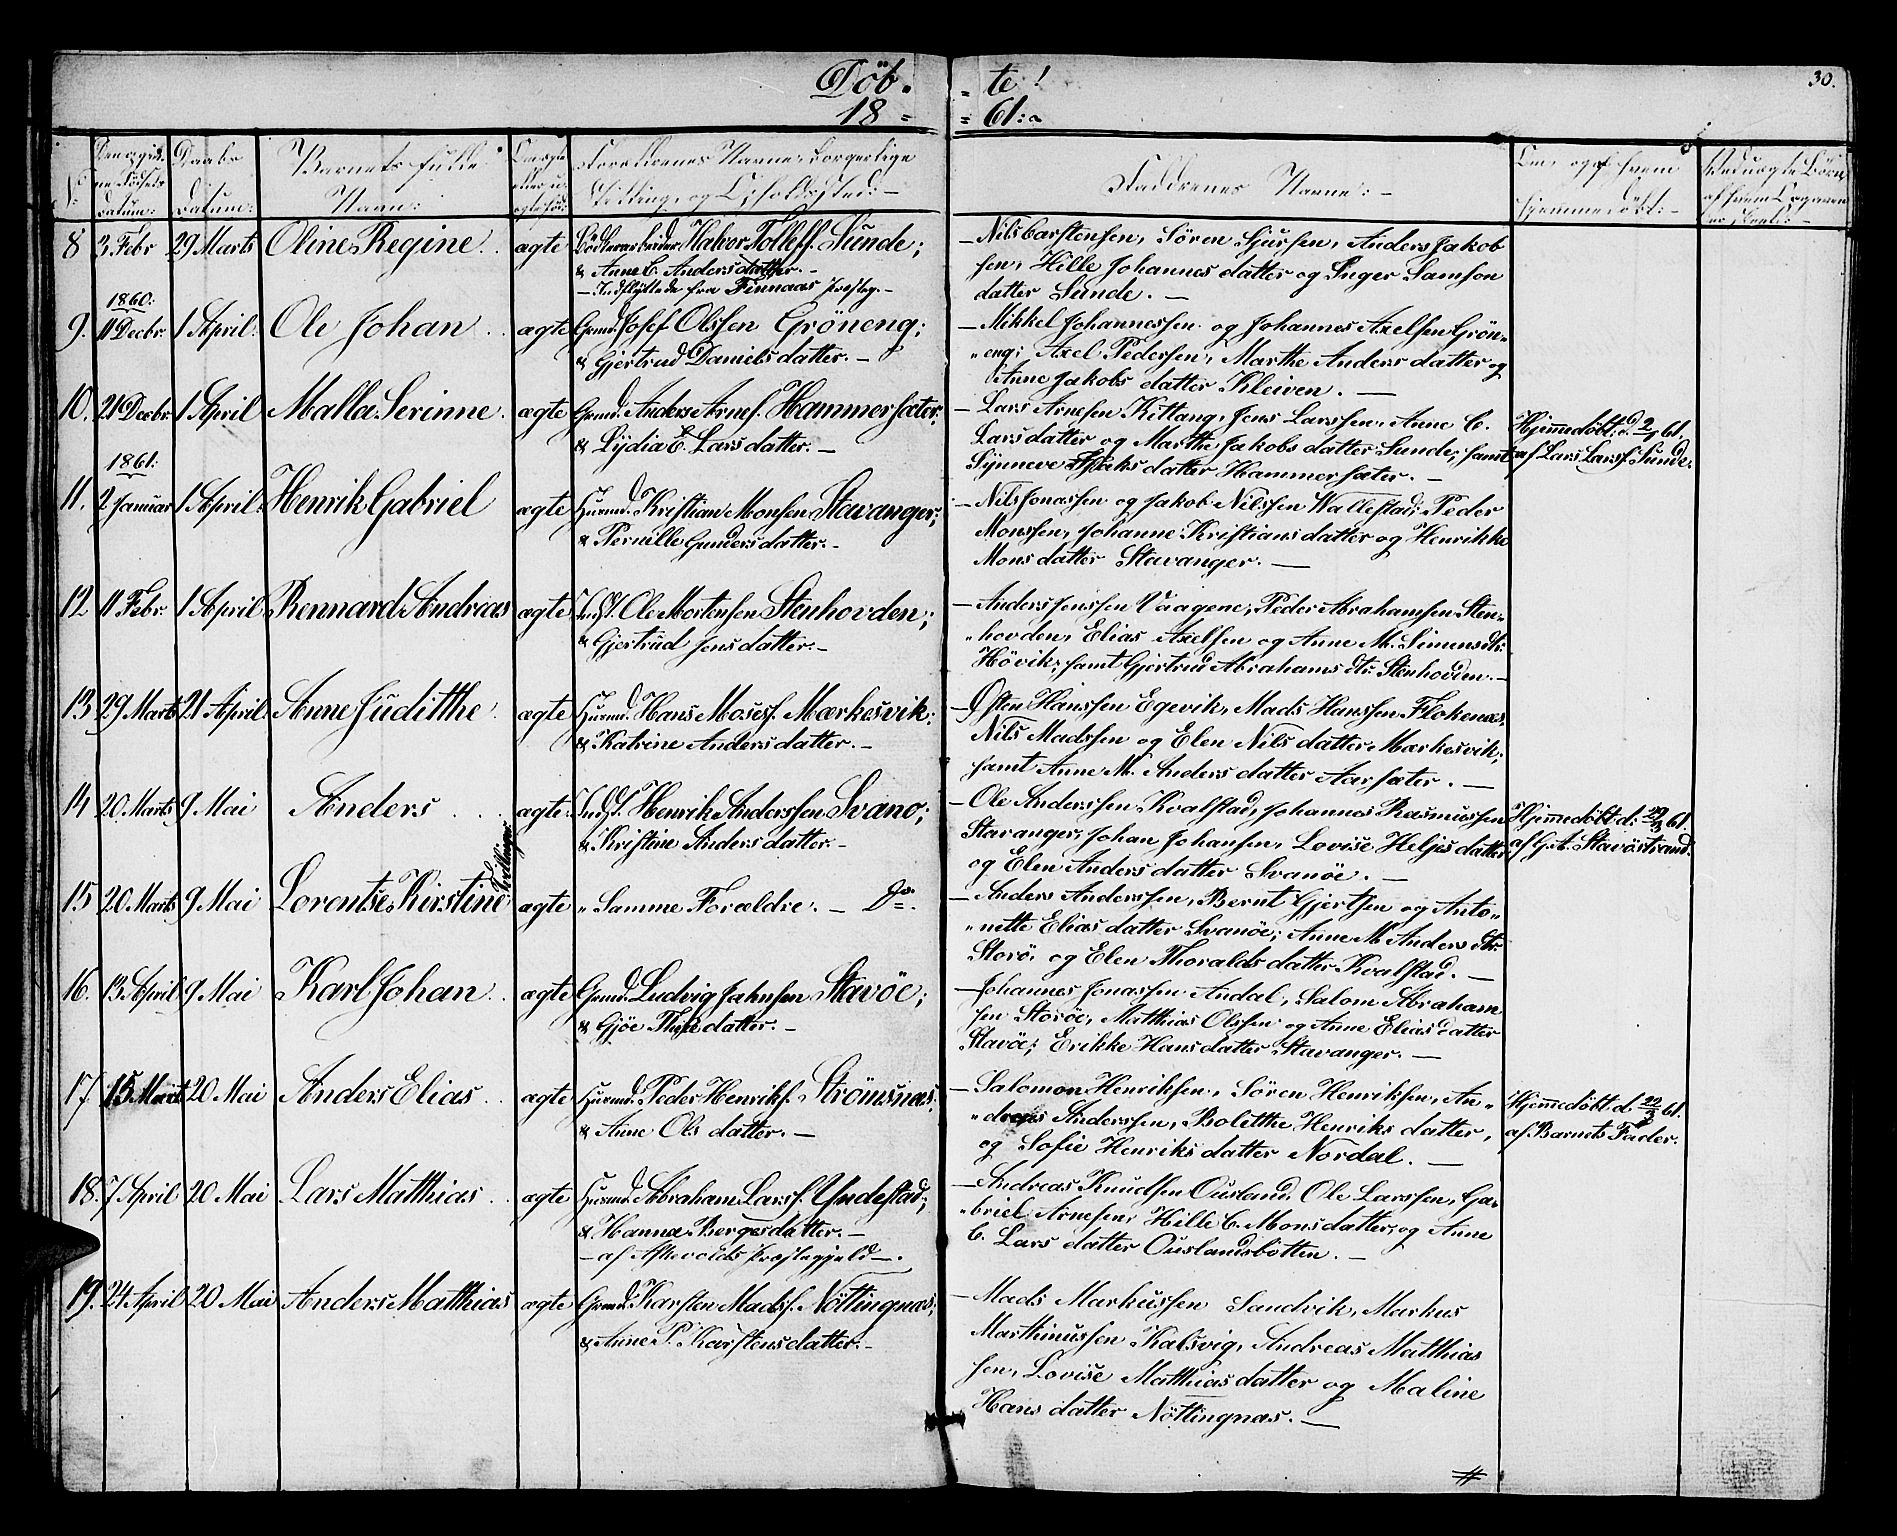 Døb. - te!
18 = = 61:
30.
No:
Barnets fulde
Navn:
Daabs
Datum:
Forældrenes Navne, borgerlige
Stilling, og Opholdssted: -
Faddrenes Navne: -
Om, og af hvem
hjemmedøbt: -
8 3 Febr 29 Marts Oline Regine. ægte Halvor Tolleff. Sunde;
& Anne C. Andersdatter. -
- Indflyttede fra Finnaas Prstg. -
- Nils Carstensen, Sören Sjursen, Anders Jakob
sen, Hille Johannesdatter og Inger Samson
datter Sunde. -
1860:
9. 11 Decbr. 1 April. Ole Johan ægte Grmd. Josef Olssen Gröneng;
& Gjertrud Danielsdatter. -
- Mikkel Johannessen og Johannes Axelsen Grön-
"eng; Axel Pedersen, Marthe Andersdatter og
Anne Jakobsdatter Kleiven. -
10. 21 Decbr 1 April Malla Serinne. ægte Grmd. Anders Arnes. Hammersæter,
& Lydia E. Larsdatter. -
- Lars Arnesen Kittang, Jens Larssen, Anne C.
Larsdatter og Marthe Jakobsdatter Sunde; samt
Synneve datter Hammersæter. -
Hjemmedøbt: d. 2/1 61,
af Lars Larss. Sunde.
1861:
11. 2 Januar 1 April. Henrik Gabriel ægte Huusmd. Kristian Monsen Stavanger;
& Pernille Gundersdatter. -
- Nils Jonassen og Jakob Nilssen Wallestad; Peder
Monssen, Johanne Kristiansdatter og Henrikke
Monsdatter Stavanger. -
12 11 Febr. 1 April Rennard Andreas ægte Inds. Ole Mortensen Stenhovden;
& Gjertrud Jensdatter. -
- Anders Jenssen Vaagene, Peder Abrahamsen Sten-
"hovden, Elias Axelsen og Anne M. Simensdtr.
Hövik; samt Gjertrud Abrahamsdtr. Stenhovden. -
13 29 Marts 21 April. Anne Juditthe. ægte Huusmd. Hans Moses. Mærkesvik;
& Katrine Andersdatter. -
- Østen Hanssen Egevik, Mads Hanssen Flokenæs,
Nils Madssen og Elen Nilsdatter Mærkesvik;
samt Anne M. Andersdatter Aarsæter. -
14 20 Marts 9 Mai Anders ægte. Inds. Henrik Anderssen Svanö;
& Kristine Andersdatter. -
- Ole Anderssen Kvalstad, Johannes Rasmussen
Stavanger, Johan Johansen, Lovise Heljesdatter
og Elen Andersdatter Svanöe. -
Hjemmedöbt d. 29/3 61.
af G. A. Stavöstrand.
Tvillinger
15 20 Marts 9 Mai Lorentse Kirstine ægte " Samme Forældre. - Do.
- Anders Anderssen, Bernt Gjertsen og Anto-
"nette Eliasdatter Svanöe; Anne M. Andersdtr.
Storö, og Elen Thoraldsdatter Kvalstad. -
16. 13 April 9 Mai Karl Johan. ægte Grmd. Ludvig Jahnsen Stavöe;
& Gjöe datter. -
- Johannes Jonassen Andal, Salom Abraham
sen Storöe, Matthias Olssen og Anne Eliasdatter
Stavöe; Erikke Hansdatter Stavanger. -
17 15 Marts 20 Mai Anders Elias ægte Huusmd. Peder Henriks. Strömsnæs,
& Anne Olsdatter. -
- Salomon Henriksen, Sören Henriksen, An-
"dreas Anderssen, Bolitthe Henriksdatter,
og Sofie Henriksdatter Nordal. -
Hjemmedöbt d. 22/3 61.
af Barnets Fader.
18. 7 April 20 Mai Lars Matthias ægte Huusmd. Abraham Larss. Yndestad;
& Hanna Bergesdatter. -
- af Askevolds Præstegjeld -.
- Andreas Knudsen Ousland, Ole Larssen, Ga-
"briel Arnesen, Hille C. Monsdatter, og Anne
C. Larsdatter Ouslandsbotten. -
19. 24 April 20 Mai Anders Matthias ægte Grmd. Karsten Madss. Nöttingnæs;
& Anne P. Karstensdatter. -
- Mads Markussen Sandvik, Markus
Marthinussen Kalsvig, Andreas Matthias
sen, Lovise Matthiasdatter og Maline
Hansdatter Nöttingnæs. -
#